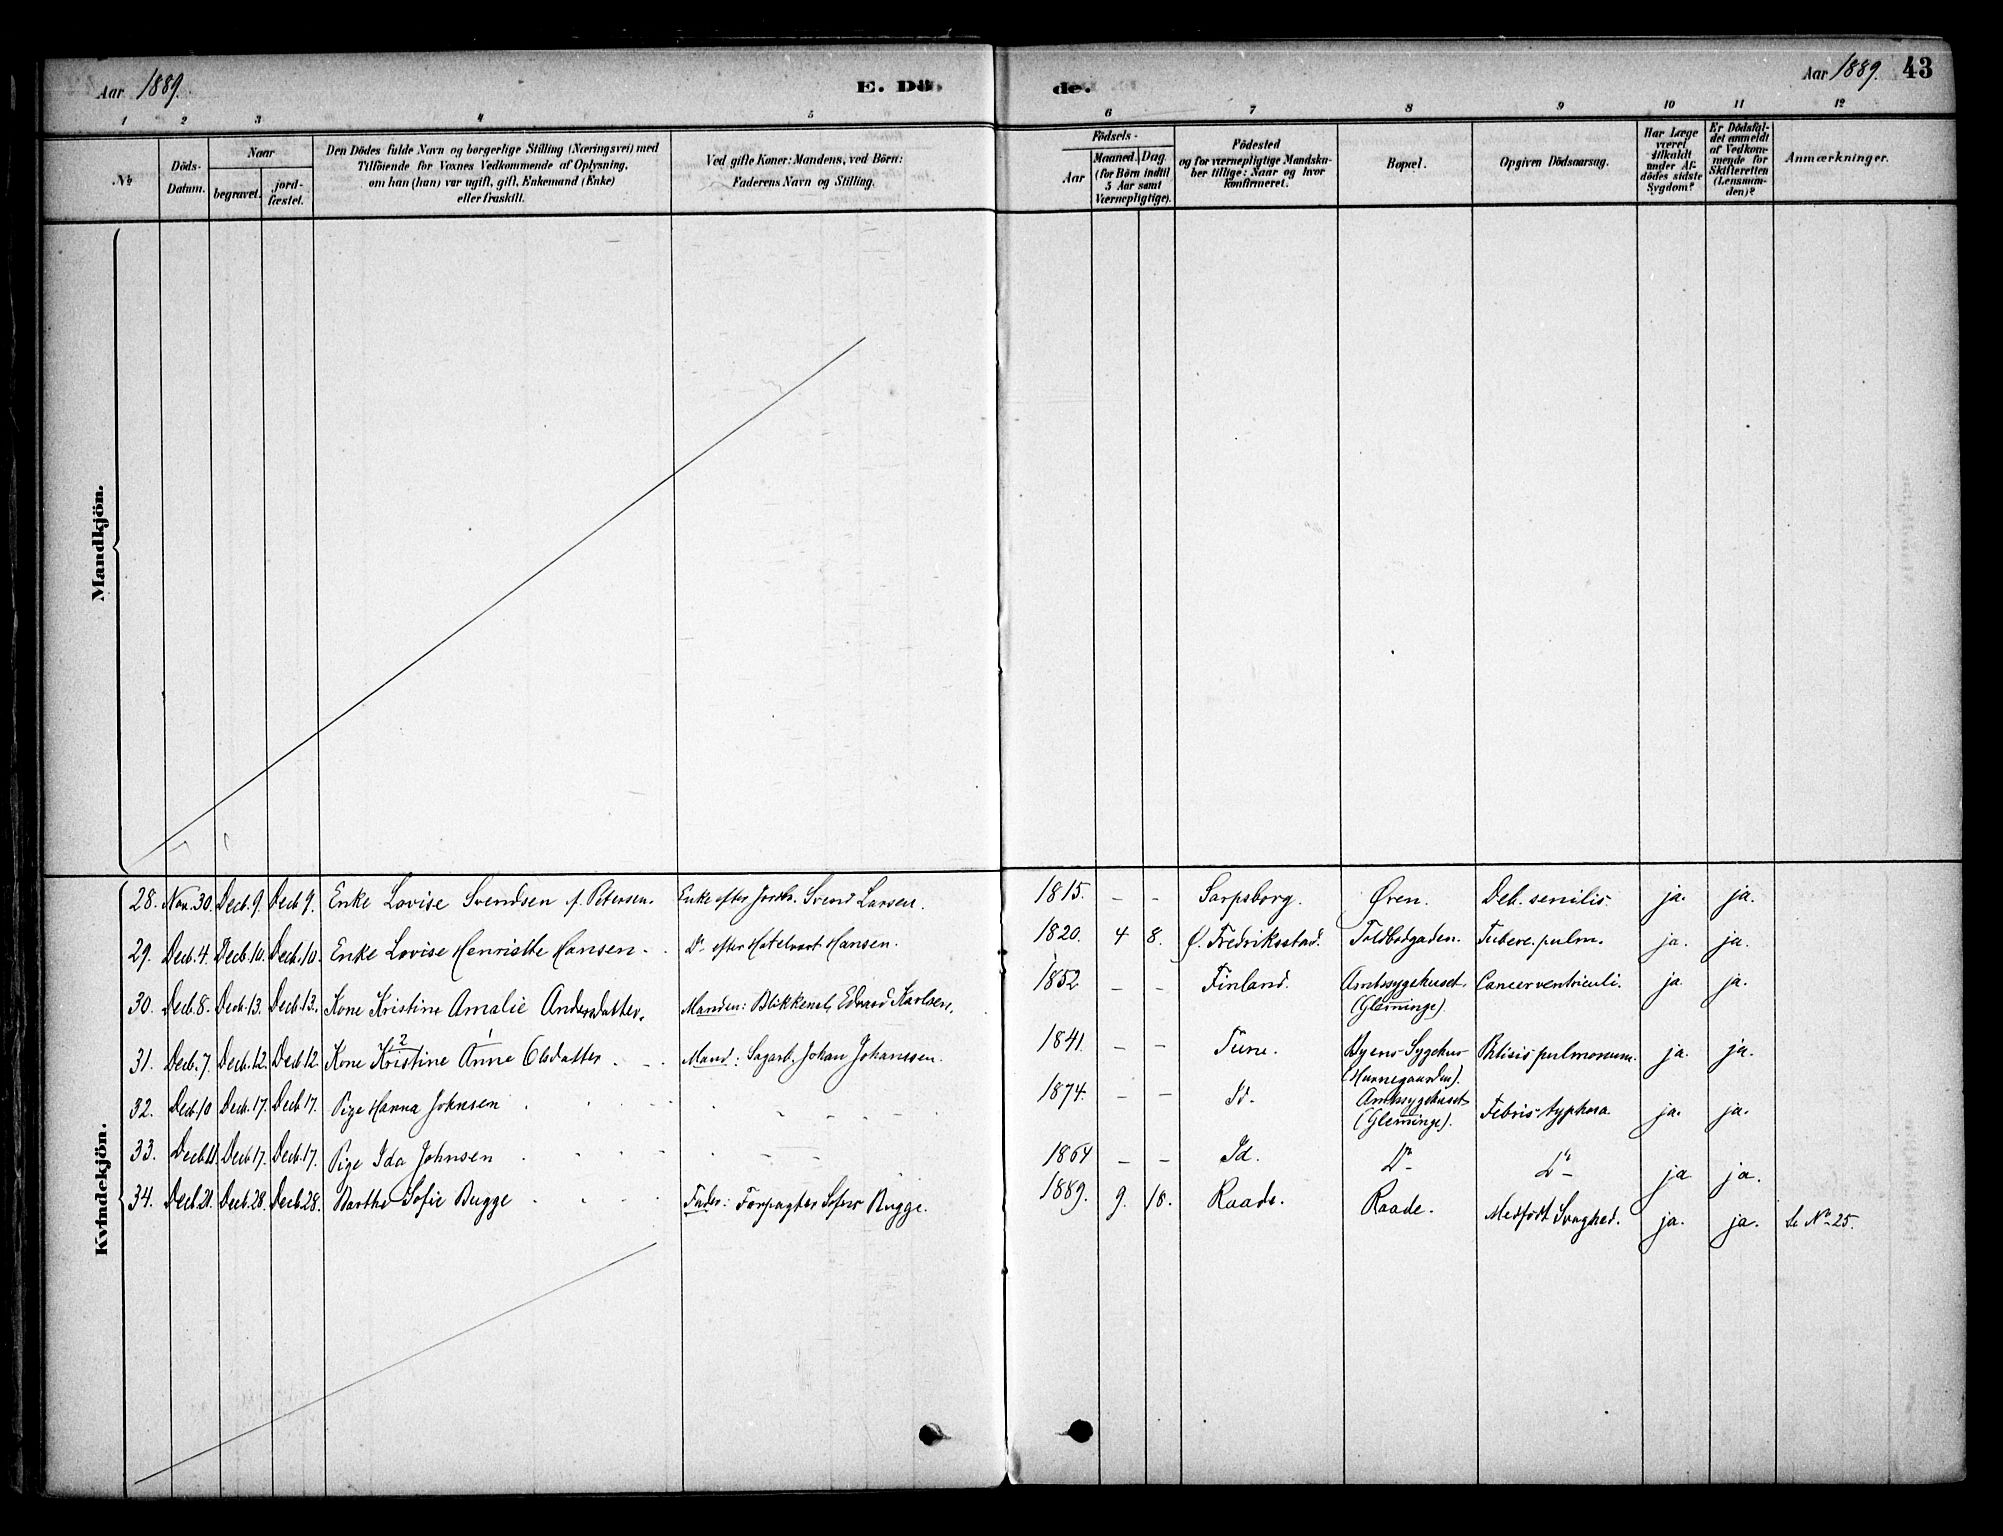 Aar 1889. E. Dö de. Aar 1889. 43
1 2 3 4 5 6 7 8 9 10 11 12
No
Döds-Datum.
Naar
begravet.
jord-fæstet.
Den Dödes fulde Navn og borgerlige Stilling (Næringsvei) med
Tilföiende for Voxnes Vedkommende af Oplysning,
om han (hun) var ugift, gift, Enkemand (Enke)
eller fraskilt.
Ved gifte Koner: Mandens, ved Börn:
Faderens Navn og Stilling.
Födsels-
Aar
Maaned. Dag.
(for Börn indtil
5 Aar samt
Værnepligtige).
Födested
og for værnepligtige Mandska-
ber tillige: Naar og hvor
konfirmeret.
Bopæl.
Opgiven Dödsaarsag.
Har Læge
været
tilkaldt
under Af-
dödes sidste
Sygdom?
Er Dödsfal-
det anmeldt
af Vedkom-
mende for
Skifteretten
(Lensman-
den)?
Anmærkninger.
Mandkjön.
Kvindekjön.
28. Nov. 30. Decb. 9. Decb. 9. Enke Lovise Svendsen f. Petersen. Enke efter Jordbr. Svend Larsen. 1815. – – Sarpsborg. Øren. Deb. senilis. ja. ja.
29. Decb. 4. Decb. 10. Decb. 10. Enke Lovise Henriette Hansen. Do efter Hotelvært Hansen. 1820. 4 8. Ø. Fredriksstad. Toldbodgaden. Tuberc. pulm. ja. ja.
30. Decb. 8. Decb. 13. Decb. 13. Kone Kristine Amalie Andersdatter. Manden: Blikkensl. Edvard Karlsen. 1852 – – Finland. Amtssygehuset (Glemminge). Cancer ventriculi. ja. ja.
31. Decb. 7. Decb. 12. Decb. 12. Kone Kristine 2 Anne 1 Olsdatter. Mand: Sagarb. Johan Johanssen. 1841. – – Tune. Byens Sygehus (Hunnegaarden). Phtisis pulmonum. ja. ja.
32. Decb. 10 Decb. 17. Decb. 17. Pige Hanna Johnsen 1874. – – Id. Amtssygehuset (Glemminge). Febris typhosa. ja. ja.
33. Decb. Decb. 17. Decb. 17. Pige Ida Johnsen 1864 – – Id. Do Do ja ja.
34. Decb. 21. Decb. 28. Decb. 28. Barthe Sofie Bugge Fader: Forpagter Bugge. 1889. 9. 18. Raade. Raade. Medfødt Svaghed. ja. ja. Se No 25.